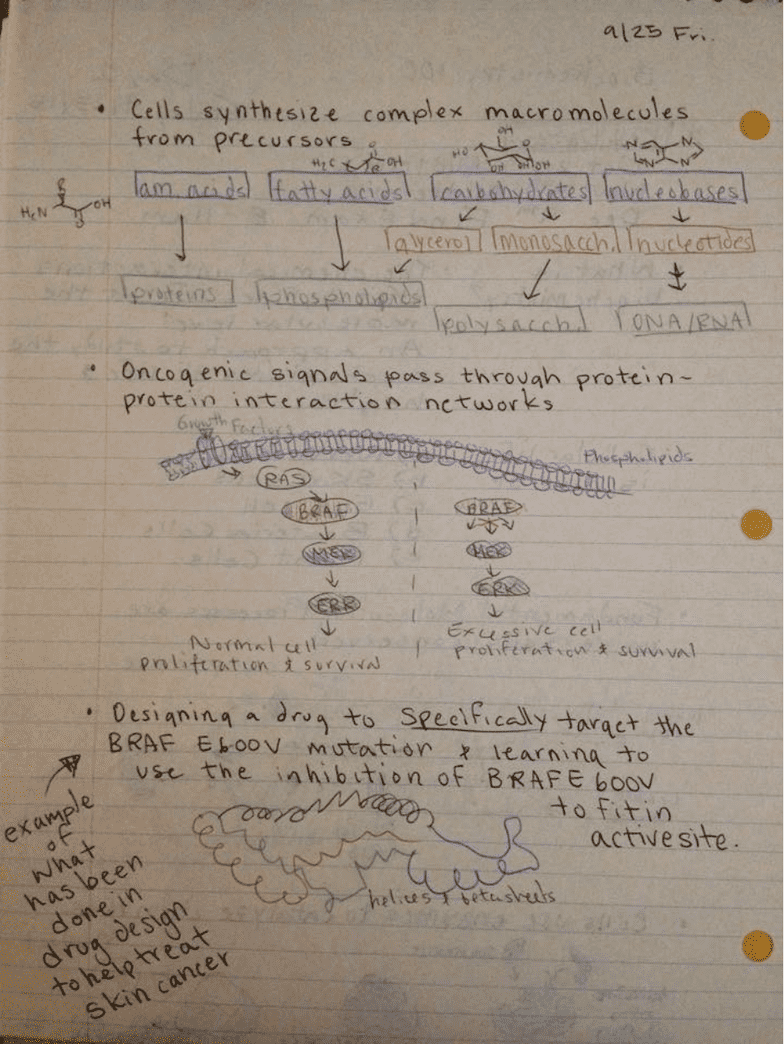 9/25 Fri.
• Cells synthesize complex macromolecules
from precursors
H₂C OH
HO OH OH OH OH
N N N N
H₂N R OH O
am. acids fatty acids carbohydrates nucleobases
glycerol monosacch. nucleotides
proteins phospholipids
polysacch. DNA/RNA
• Oncogenic signals pass through protein-
protein interaction networks
Growth Factors
Phospholipids
RAS
BRAF BRAF
MEK MEK
ERK ERK
Normal cell
proliferation & survival
Excessive cell
proliferation & survival
• Designing a drug to specifically target the
BRAF E600V mutation & learning to
use the inhibition of BRAFE600V
to fit in
active site.
example
of
what
has been
done in
drug design
to help treat
skin cancer
helices & betasheets